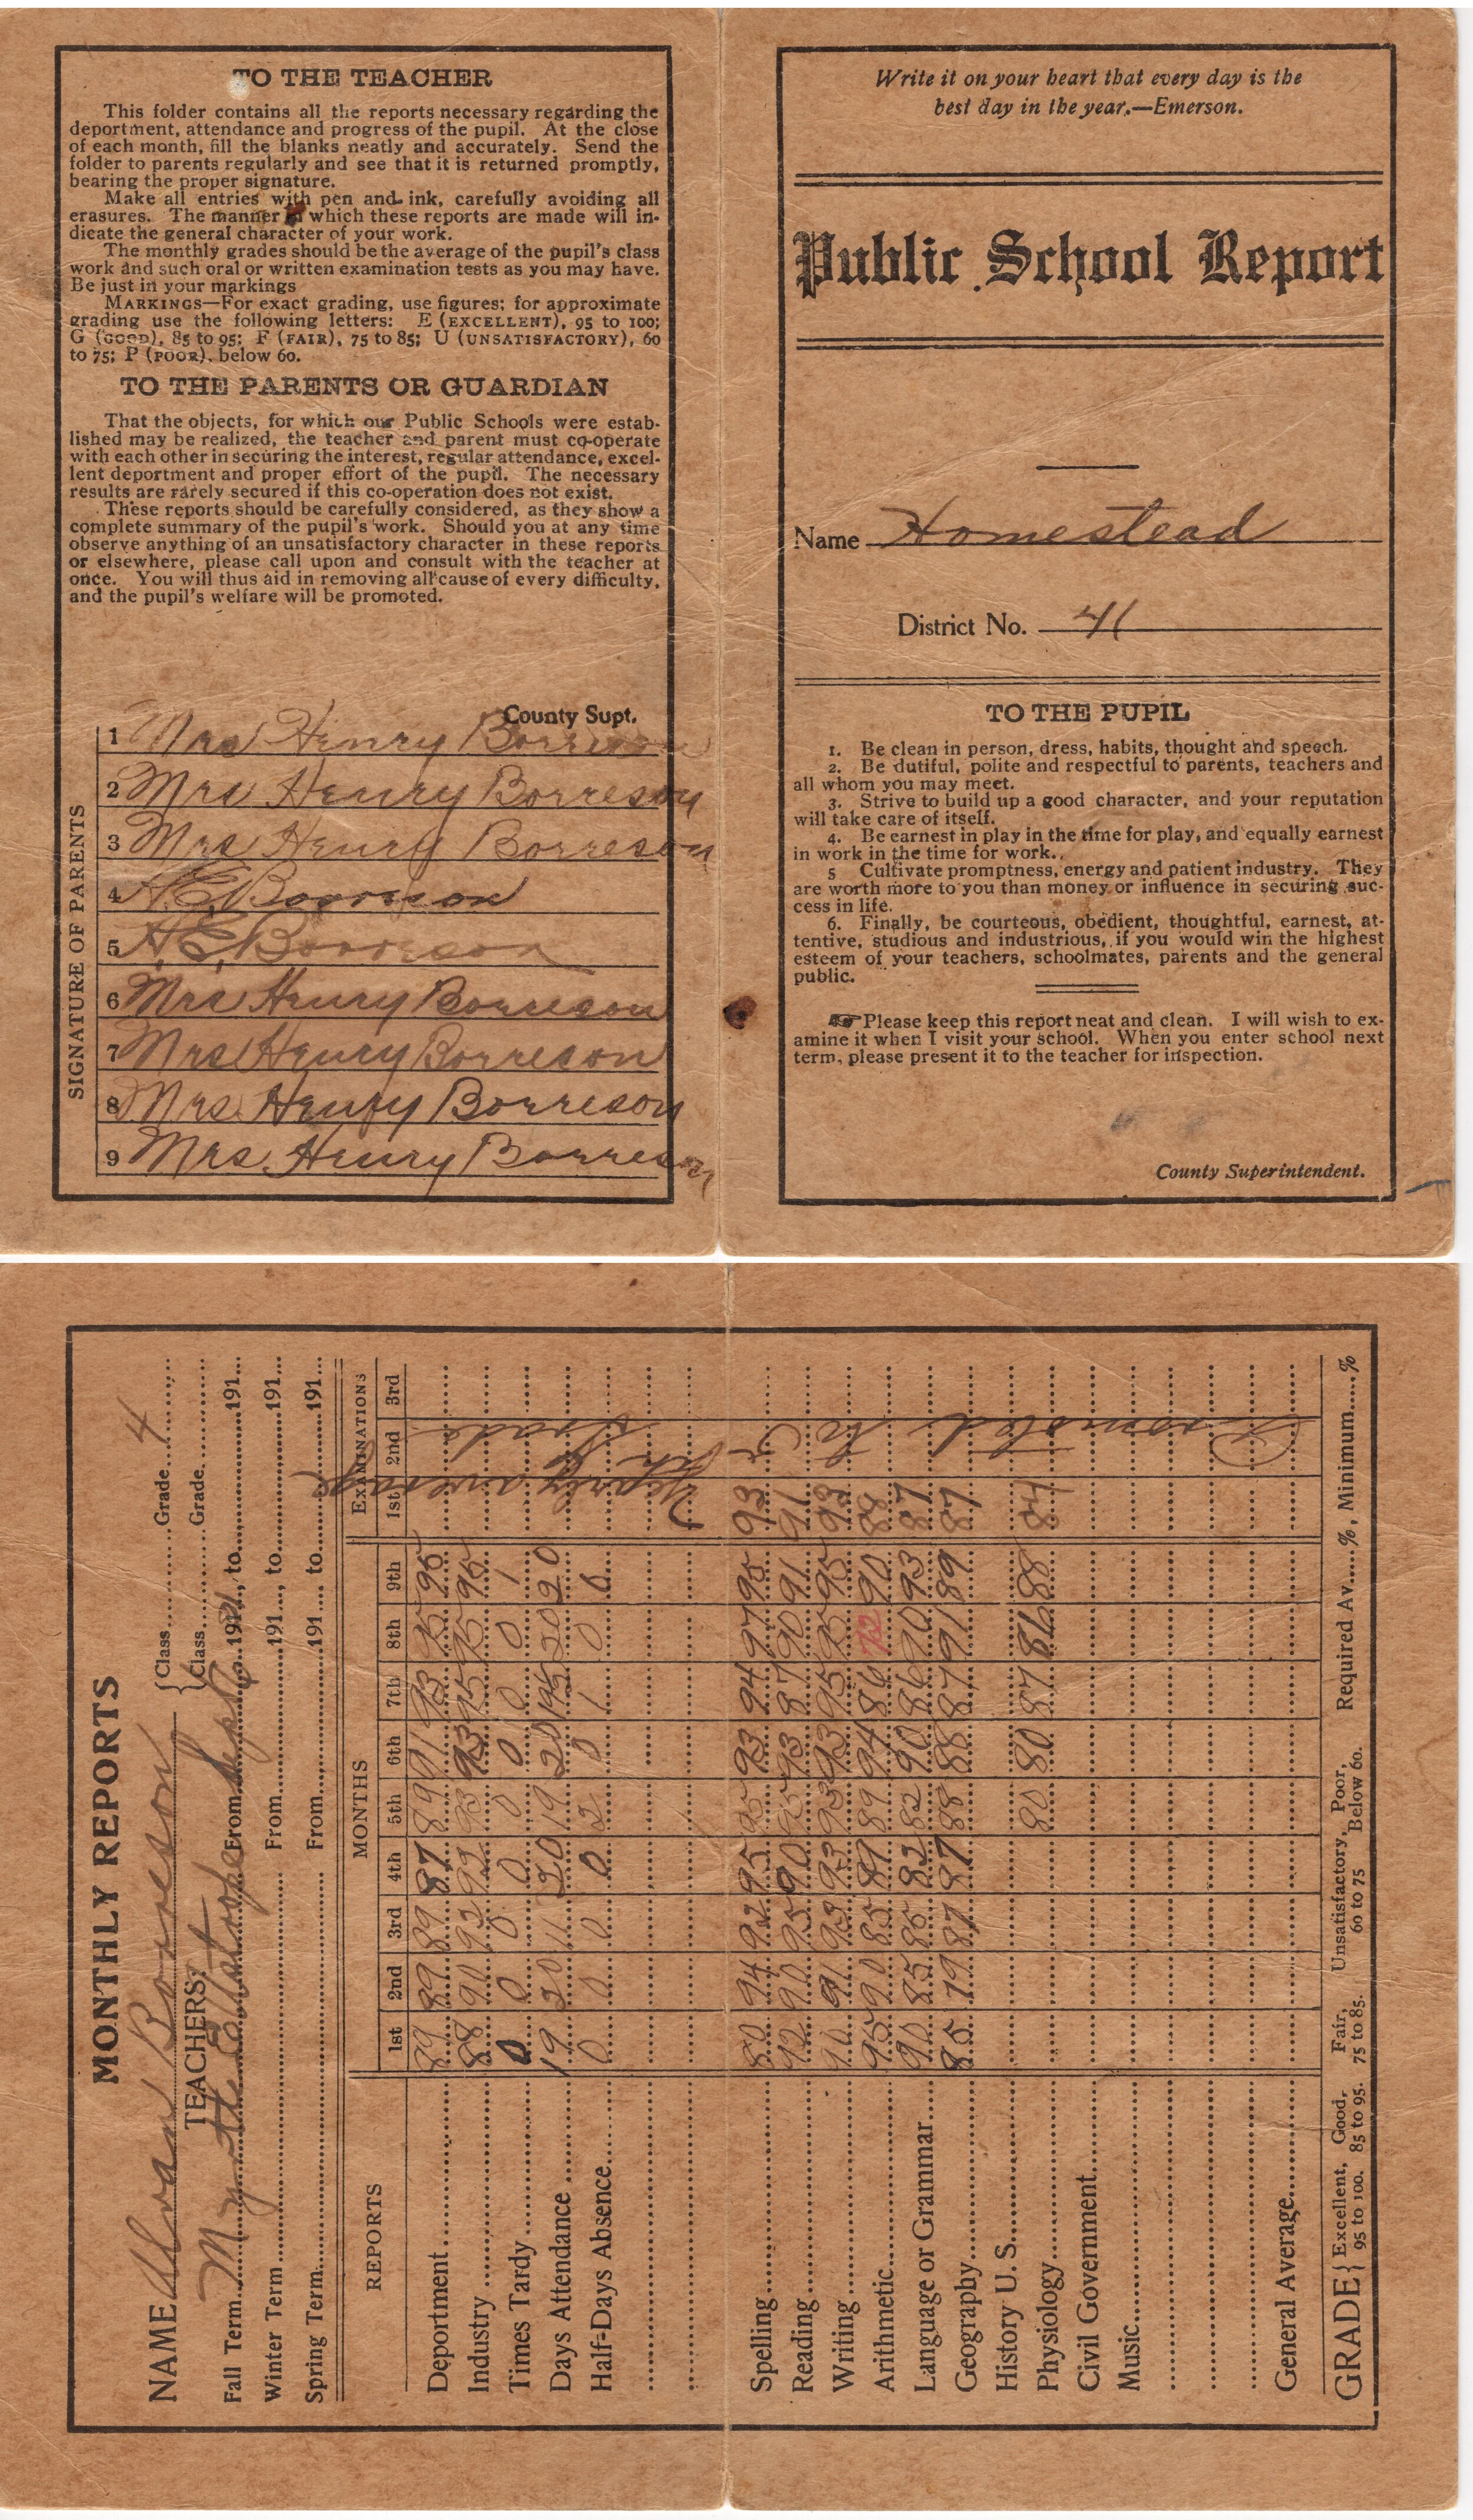 TO THE TEACHER
This folder contains all the reports necessary regarding the
deportment, attendance and progress of the pupil. At the close
of each month, fill the blanks neatly and accurately. Send the
folder to parents regularly and see that it is returned promptly,
bearing the proper signature.
Make all entries with pen and ink, carefully avoiding all
erasures. The manner in which these reports are made will in-
dicate the general character of your work.
The monthly grades should be the average of the pupil's class
work and such oral or written examination tests as you may have.
Be just in your markings
MARKINGS—For exact grading, use figures; for approximate
grading use the following letters: E (EXCELLENT), 95 to 100;
G (GOOD), 85 to 95; F (FAIR), 75 to 85; U (UNSATISFACTORY), 60
to 75; P (POOR), below 60.
TO THE PARENTS OR GUARDIAN
That the objects, for which our Public Schools were estab-
lished may be realized, the teacher and parent must co-operate
with each other in securing the interest, regular attendance, excel-
lent deportment and proper effort of the pupil. The necessary
results are rarely secured if this co-operation does not exist.
These reports should be carefully considered, as they show a
complete summary of the pupil's work. Should you at any time
observe anything of an unsatisfactory character in these reports
or elsewhere, please call upon and consult with the teacher at
once. You will thus aid in removing all cause of every difficulty,
and the pupil's welfare will be promoted.
County Supt.
SIGNATURE OF PARENTS
1 Mrs Henry Borreson
2 Mrs Henry Borreson
3 Mrs Henry Borreson
4 H.E. Borreson
5 H.E. Borreson
6 Mrs Henry Borreson
7 Mrs Henry Borreson
8 Mrs. Henry Borreson
9 Mrs. Henry Borreson
Write it on your heart that every day is the
best day in the year.—Emerson.
Public School Report
Name Homestead
District No. 41
TO THE PUPIL
1. Be clean in person, dress, habits, thought and speech.
2. Be dutiful, polite and respectful to parents, teachers and
all whom you may meet.
3. Strive to build up a good character, and your reputation
will take care of itself.
4. Be earnest in play in the time for play, and equally earnest
in work in the time for work.
5 Cultivate promptness, energy and patient industry. They
are worth more to you than money or influence in securing suc-
cess in life.
6. Finally, be courteous, obedient, thoughtful, earnest, at-
tentive, studious and industrious, if you would win the highest
esteem of your teachers, schoolmates, parents and the general
public.
Please keep this report neat and clean. I will wish to ex-
amine it when I visit your school. When you enter school next
term, please present it to the teacher for inspection.
County Superintendent.
MONTHLY REPORTS
NAME Alvan Borreson Class Grade 4
TEACHERS: Class Grade
Fall Term From Sept 191 , to 191
Winter Term From 191 , to 191
Spring Term From 191 to 191
REPORTS MONTHS EXAMINATIONS
1st 2nd 3rd 4th 5th 6th 7th 8th 9th 1st 2nd 3rd
Deportment 89 89 89 87 89 91 93 95 95
Industry 88 90 93 92 93 93 95 95 95
Times Tardy 0 0 0 0 0 0 0 0 1
Days Attendance 19 20 11 20 19 20 19½ 20 20
Half-Days Absence 0 0 0 0 2 0 1 0 0
Yearly average
Promoted to 5th Grade
Spelling 80 94 92 95 95 93 94 97 95 93
Reading 92 90 95 90 95 93 87 90 91 91
Writing 90 91 93 93 93 93 95 95 95 93
Arithmetic 95 90 85 89 89 94 86 72 90 88
Language or Grammar 90 85 85 82 82 90 86 90 93 87
Geography 85 79 87 87 88 88 87 91 89 87
History U. S.
Physiology 80 80 87 86 88 84
Civil Government
Music
General Average
GRADE { Excellent, 95 to 100. Good, 85 to 95. Fair, 75 to 85. Unsatisfactory, 60 to 75 Poor, Below 60. Required Av. %, Minimum %